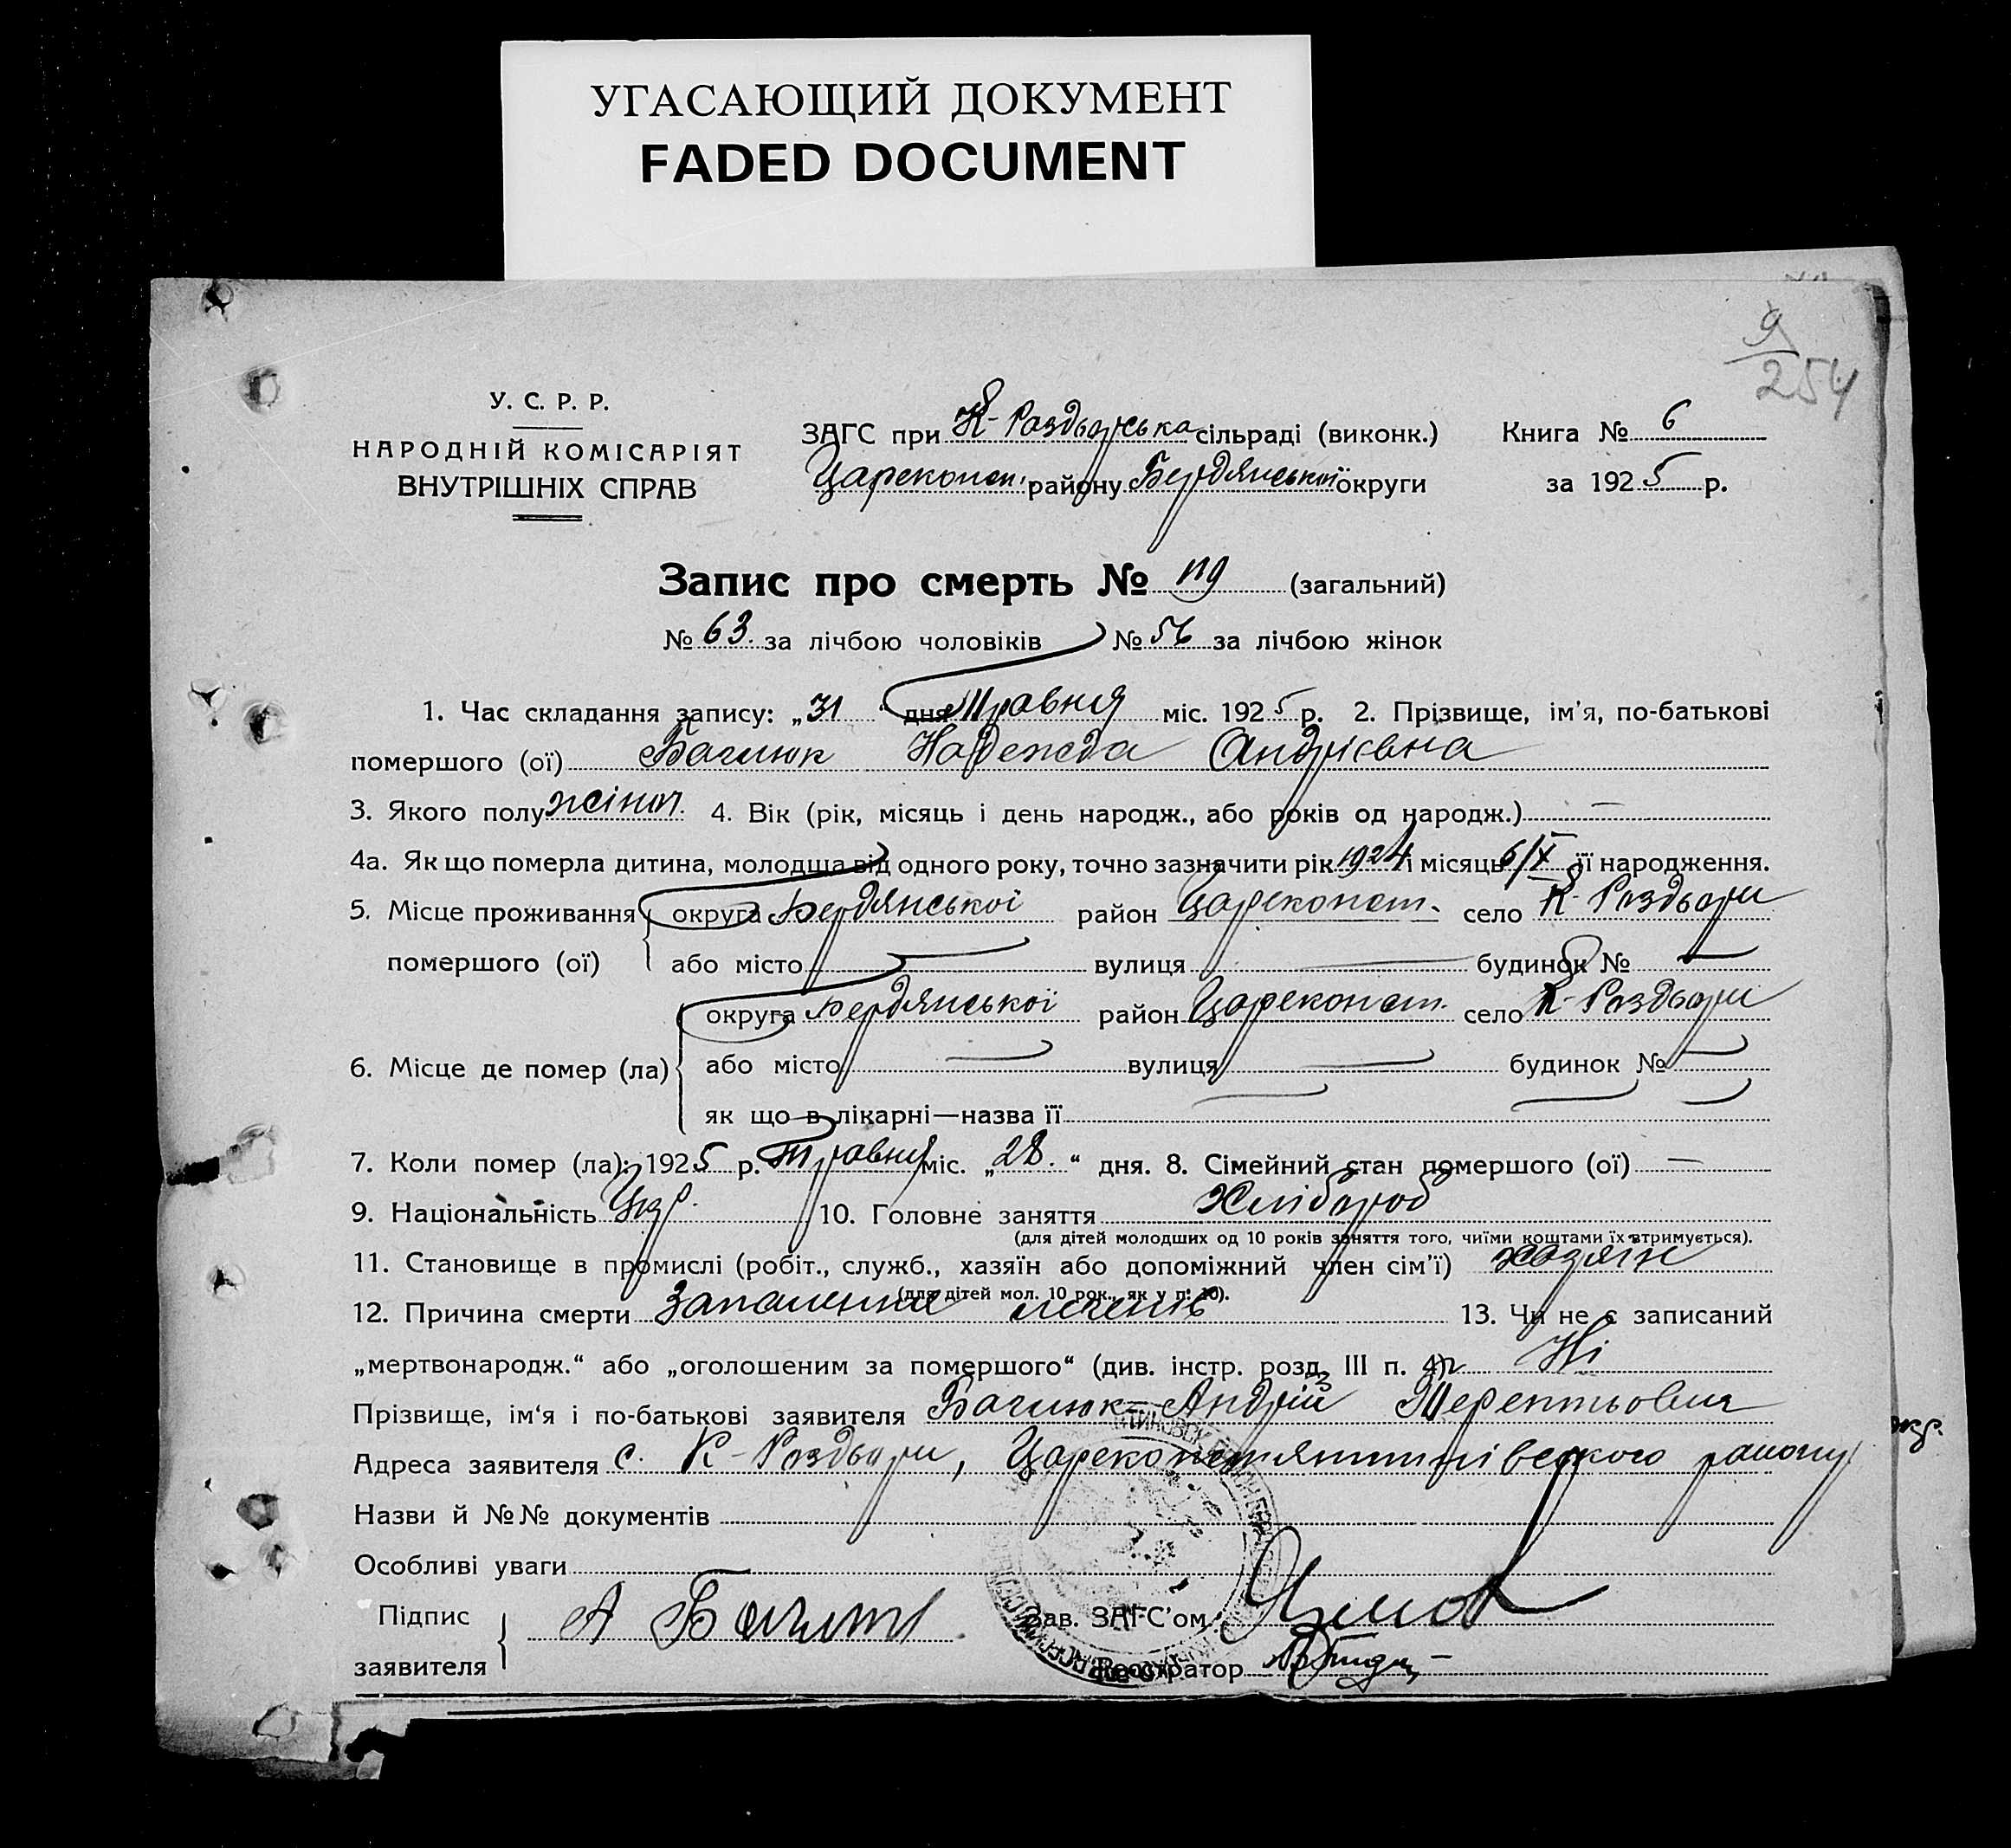 УГАСАЮЩИЙ ДОКУМЕНТ
FADED DOCUMENT
9
254
У. С. Р. Р.
НАРОДНІЙ КОМІСАРІЯТ
ВНУТРІШНІХ СПРАВ
ЗАГС при К-Роздорська сільраді (виконк.)
Царекон. району Бердянської округи
Книга № 6
за 1925 р.
Запис про смерть № 119 (загальний)
№ 63. за лічбою чоловіків № 56 за лічбою жінок
1. Час складання запису: „31“ дня Травня міс. 1925 р. 2. Прізвище, ім’я, по-батькові
помершого (ої) Багиюк Надежда Андрієвна
3. Якого полу жіноч. 4. Вік (рік, місяць і день народж., або років од народж.) —
4а. Як що померла дитина, молодша від одного року, точно зазначити рік 1924 і місяць 6/X її народження.
5. Місце проживання округа Бердянської район Цареконст. село К-Роздори
помершого (ої) або місто — вулиця — будинок № —
округа Бердянської район Цареконст. село К-Роздори
6. Місце де помер (ла) або місто — вулиця — будинок № —
як що в лікарні—назва її
7. Коли помер (ла): 1925 р. Травня міс. „28.“ дня. 8. Сімейний стан помершого (ої) —
9. Національність Укр. 10. Головне заняття Хлібороб
(для дітей молодших од 10 років заняття того, чиїми коштами їх втримується).
11. Становище в промислі (робіт., служб., хазяїн або допоміжний член сім’ї) хазяїн
(для дітей мол. 10 рок., як у п. 10).
12. Причина смерти Запалення легенів 13. Чи не є записаний
„мертвонародж.“ або „оголошеним за помершого“ (див. інстр. розд. III п. 4) Ні
Прізвище, ім‘я і по-батькові заявителя Андрій Терентьович
Адреса заявителя с. К-Роздори, Царекостянтинівського району
Назви й №№ документів
Особливі уваги
Підпис
заявителя А
Зав. ЗАГС’ом
Реєстратор